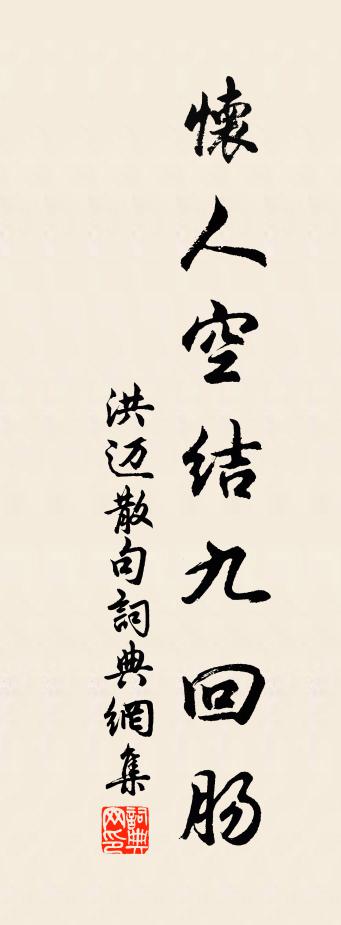 懷人空结九回肠
洪迈散句詞典網集
詞典网印